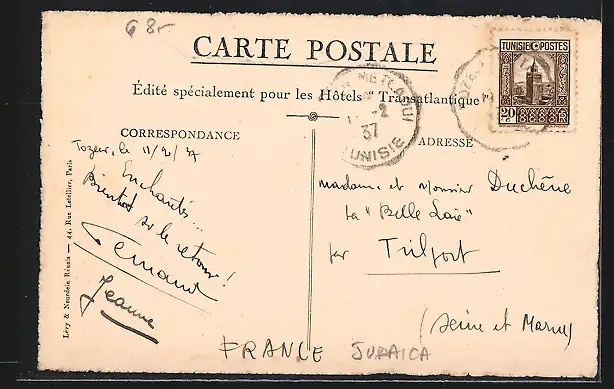 8.-
CARTE POSTALE
Édité spécialement pour les Hôtels "Transatlantique"
TUNISIE POSTES
20 c
-2
37
TUNISIE
CORRESPONDANCE
ADRESSE
Tozeur, le 11/2/37
Enchantés...
bientôt sur le retour!
Fernand
Jeanne
Madame et Monsieur Duchêne
La "Belle Laie"
par Trilport
(Seine et Marne)
Lévy & Neurdein Réunis — 44, Rue Letellier, Paris
FRANCE JUDAICA